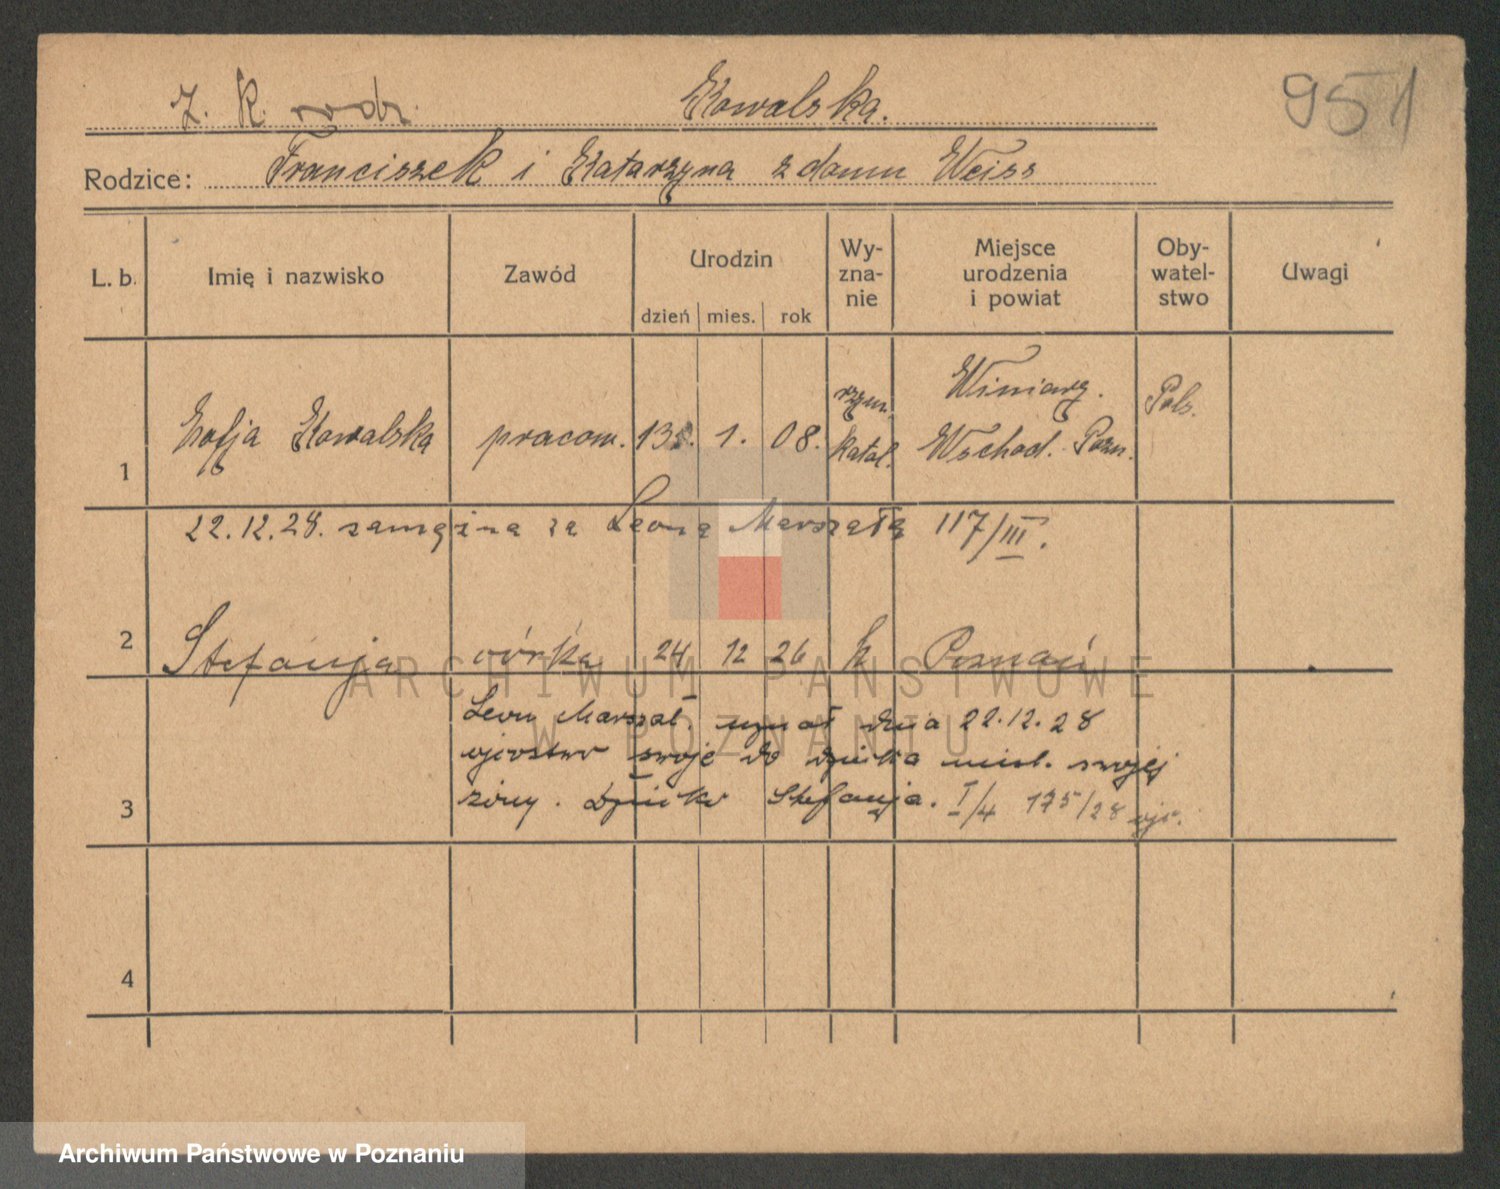 Z. K. rodz. Kowalska. 951
Rodzice: Franciszek i Katarzyna z domu Weiss
L. b. Imię i nazwisko Zawód Urodzin dzień mies. rok Wy-zna-nie Miejsce urodzenia i powiat Oby-watel-stwo Uwagi
1 Zofja Kowalska pracow. 13. 1. 08. rzym. katol. Winiary. Wschod. Pozn. Pols.
22.12.28. zamężna za Leona Marszała 117/III.
2 Stefanja córka 24 12 26 k Poznań
Leon Marszał. uznał dnia 22.12.28
ojcostwo swoje do dziecka swojej
3 żony. Dziecko Stefanja. I/4 175/28 ojc.
4
ARCHIWUM PAŃSTWOWE
W POZNANIU
Archiwum Państwowe w Poznaniu